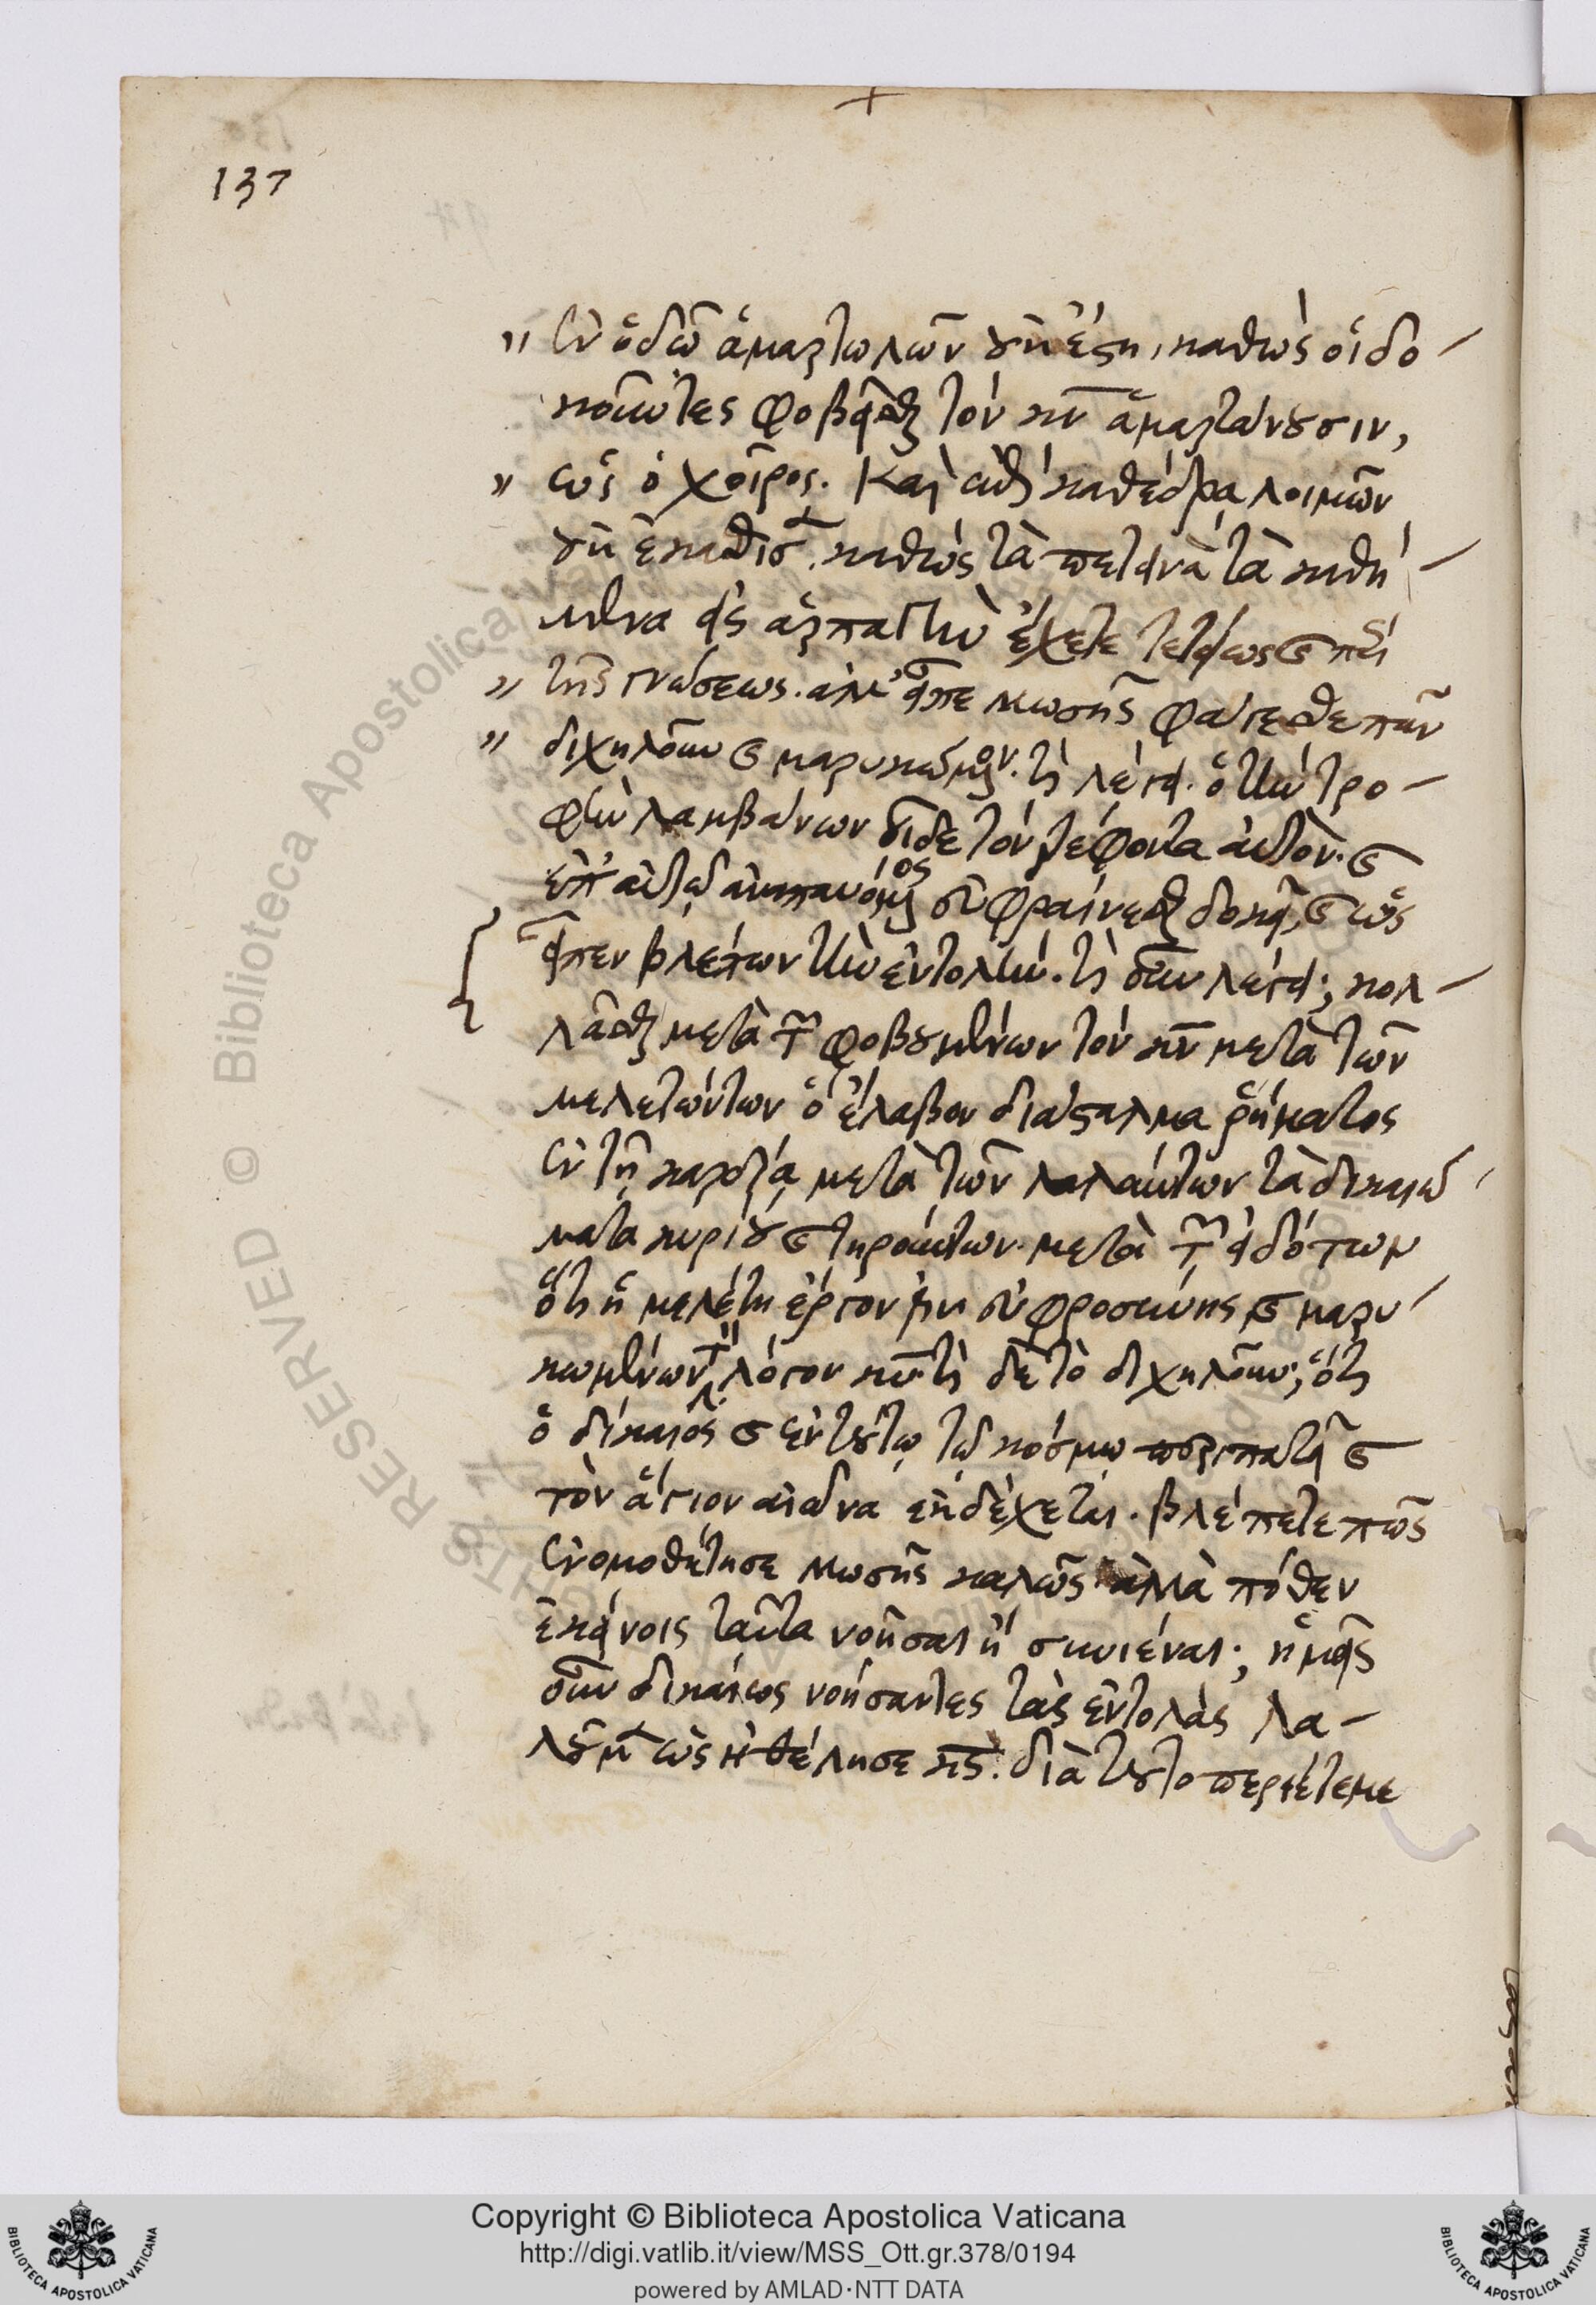 137
" ἐν ὁδῷ ἁμαρτωλῶν οὐκ ἔστη, καθὼς οἱ δο-
κοῦντες φοβεῖσθαι τὸν κν ἁμαρτάνουσιν,
" ὡς ὁ χοῖρος. καὶ ἐπὶ καθέδρᾳ λοιμῶν
οὐκ ἐκάθισ. καθὼς τὰ πετεινὰ τὰ καθή-
μενα εἰς ἁρπαγὴν ἔχετε τελείως καὶ περὶ
" τῆς γνώσεως. ἀλλ' εἶπε μωσῆς φάγεσθε πᾶν
" διχηλοῦν καὶ μαρυκώμενον. τί λέγει. ὁ τὴν τρο-
φὴν λαμβάνων οἶδε τὸν τρέφοντα αὐτὸν. καὶ
ἐπ' αὐτῷ ἀναπαυόμενος εὐφραίνεσθαι δοκεῖ, καλῶς
εἶπεν βλέπων τὴν ἐντολήν. τί οὖν λέγει; κολ-
λᾶσθαι μετὰ τῶν φοβουμένων τὸν κν μετὰ τῶν
μελετώντων ὃ ἔλαβον διάσταλμα ῥήματος
ἐν τῇ καρδίᾳ μετὰ τῶν λαλούντων τὰ δικαιώ-
ματα κυρίου καὶ τηρούντων. μετὰ τῶν εἰδότων
ὅτι ἡ μελέτη ἔργον ἐστὶν εὐφροσύνης καὶ μαρυ-
κωμένων τὸν λόγον κυ. τί δὲ τὸ διχηλοῦν; ὅτι
ὁ δίκαιος καὶ ἐν τούτῳ τῷ κόσμῳ περιπατεῖ καὶ
τὸν ἅγιον αἰῶνα ἐκδέχεται. βλέπετε πῶς
ἐνομοθέτησε μωσῆς καλῶς ἀλλὰ πόθεν
ἐκείνοις ταῦτα νοῆσαι ἢ συνιέναι; ἡμεῖς
οὖν δικαίως νοήσαντες τὰς ἐντολὰς λα-
λοῦμ ὡς ἠθέλησε κς. διὰ τοῦτο περιέτεμε
RESERVED © Biblioteca Apostolica Vaticana
Copyright © Biblioteca Apostolica Vaticana
http://digi.vatlib.it/view/MSS_Ott.gr.378/0194
powered by AMLAD·NTT DATA
BIBLIOTECA APOSTOLICA VATICANA
BIBLIOTECA APOSTOLICA VATICANA